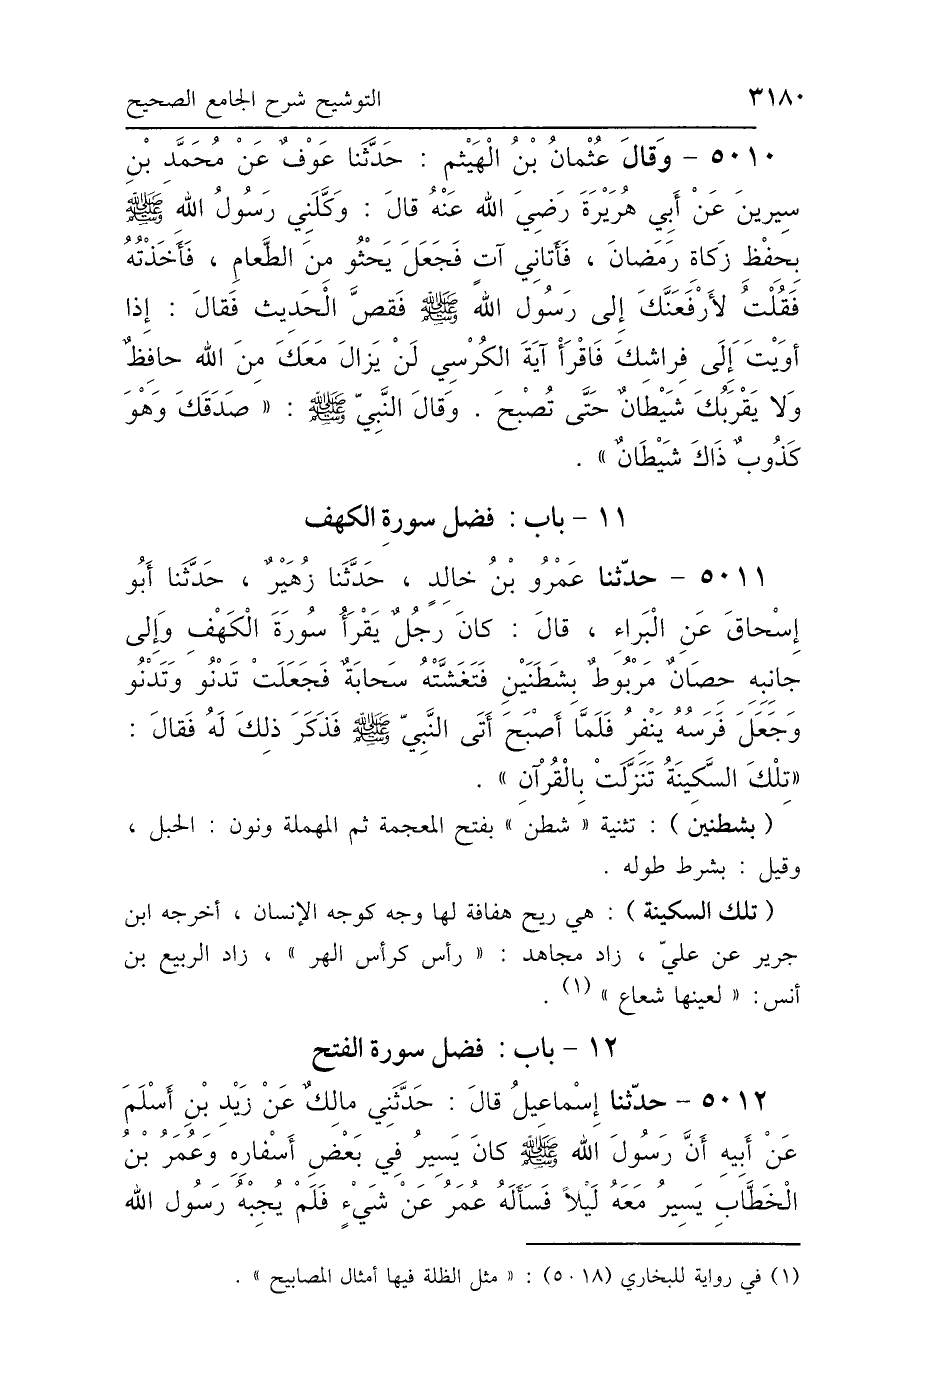 ٣١٨٠ التوشيح شرح الجامع الصحيح
٥٠١٠ - وَقالَ عُثْمانُ بْنُ الْهَيْثَمِ : حَدَّثَنا عَوْفٌ عَنْ مُحَمَّدِ بْنِ
سِيرِينَ عَنْ أَبي هُرَيْرَةَ رَضِيَ الله عَنْهُ قالَ : وَكَّلَنِي رَسُولُ اللهِ ﷺ
بِحفْظِ زَكاةِ رَمَضانَ ، فَأَتاني آتٍ فَجَعَلَ يَحْثُو مِنَ الطَّعامِ ، فَأَخَذْتُهُ
فَقُلْتُ لأَرْفَعَنَّكَ إِلى رَسُولِ اللهِ ﷺ فَقصَّ الْحَدِيثَ فَقالَ : إِذا
أَوَيْتَ إِلَى فِراشِكَ فَاقْرَأْ آيَةَ الكُرْسي لَنْ يَزالَ مَعَكَ مِنَ اللهِ حافِظٌ
وَلا يَقْرَبُكَ شَيْطانٌ حَتَّى تُصْبِحَ . وَقالَ النَّبيّ ﷺ : « صَدَقَكَ وَهْوَ
كَذُوبٌ ذَاكَ شَيْطَانٌ » .
١١ - باب : فضل سورة الكهف
٥٠١١ - حدّثنا عَمْرُو بْنُ خالِدٍ ، حَدَّثَنا زُهَيْرٌ ، حَدَّثَنا أَبُو
إِسْحاقَ عَنِ الْبَراءِ ، قالَ : كانَ رَجُلٌ يَقْرَأُ سُورَةَ الْكَهْفِ وَإِلى
جانِبِهِ حِصانٌ مَرْبُوطٌ بِشَطَنَيْنِ فَتَغَشَّتْهُ سَحابَةٌ فَجَعَلَتْ تَدْنُو وَتَدْنُو
وَجَعَلَ فَرَسُهُ يَنْفِرُ فَلَمَّا أَصْبَحَ أَتَى النَّبيّ ﷺ فَذَكَرَ ذلِكَ لَهُ فَقالَ :
«تِلْكَ السَّكِينَةُ تَنَزَّلَتْ بِالْقُرْآنِ » .
( بشطنين ) : تثنية « شطن » بفتح المعجمة ثم المهملة ونون : الحبل ،
وقيل : بشرط طوله .
( تلك السكينة ) : هي ريح هفافة لها وجه كوجه الإنسان ، أخرجه ابن
جرير عن عليّ ، زاد مجاهد : « رأس كرأس الهر » ، زاد الربيع بن
أنس: « لعينها شعاع » (١) .
١٢ - باب : فضل سورة الفتح
٥٠١٢ - حدّثنا إِسْماعِيلُ قالَ : حَدَّثَنِي مالِكٌ عَنْ زَيْدِ بْنِ أَسْلَمَ
عَنْ أَبِيهِ أَنَّ رَسُولَ اللهِ ﷺ كانَ يَسِيرُ فِي بَعْضِ أَسْفارِهِ وَعُمَرُ بْنُ
الْخَطَّابِ يَسِيرُ مَعَهُ لَيْلاً فَسَأَلَهُ عُمَرُ عَنْ شَيْءٍ فَلَمْ يُجِبْهُ رَسُول الله
(١) في رواية للبخاري (٥٠١٨) : « مثل الظلة فيها أمثال المصابيح » .